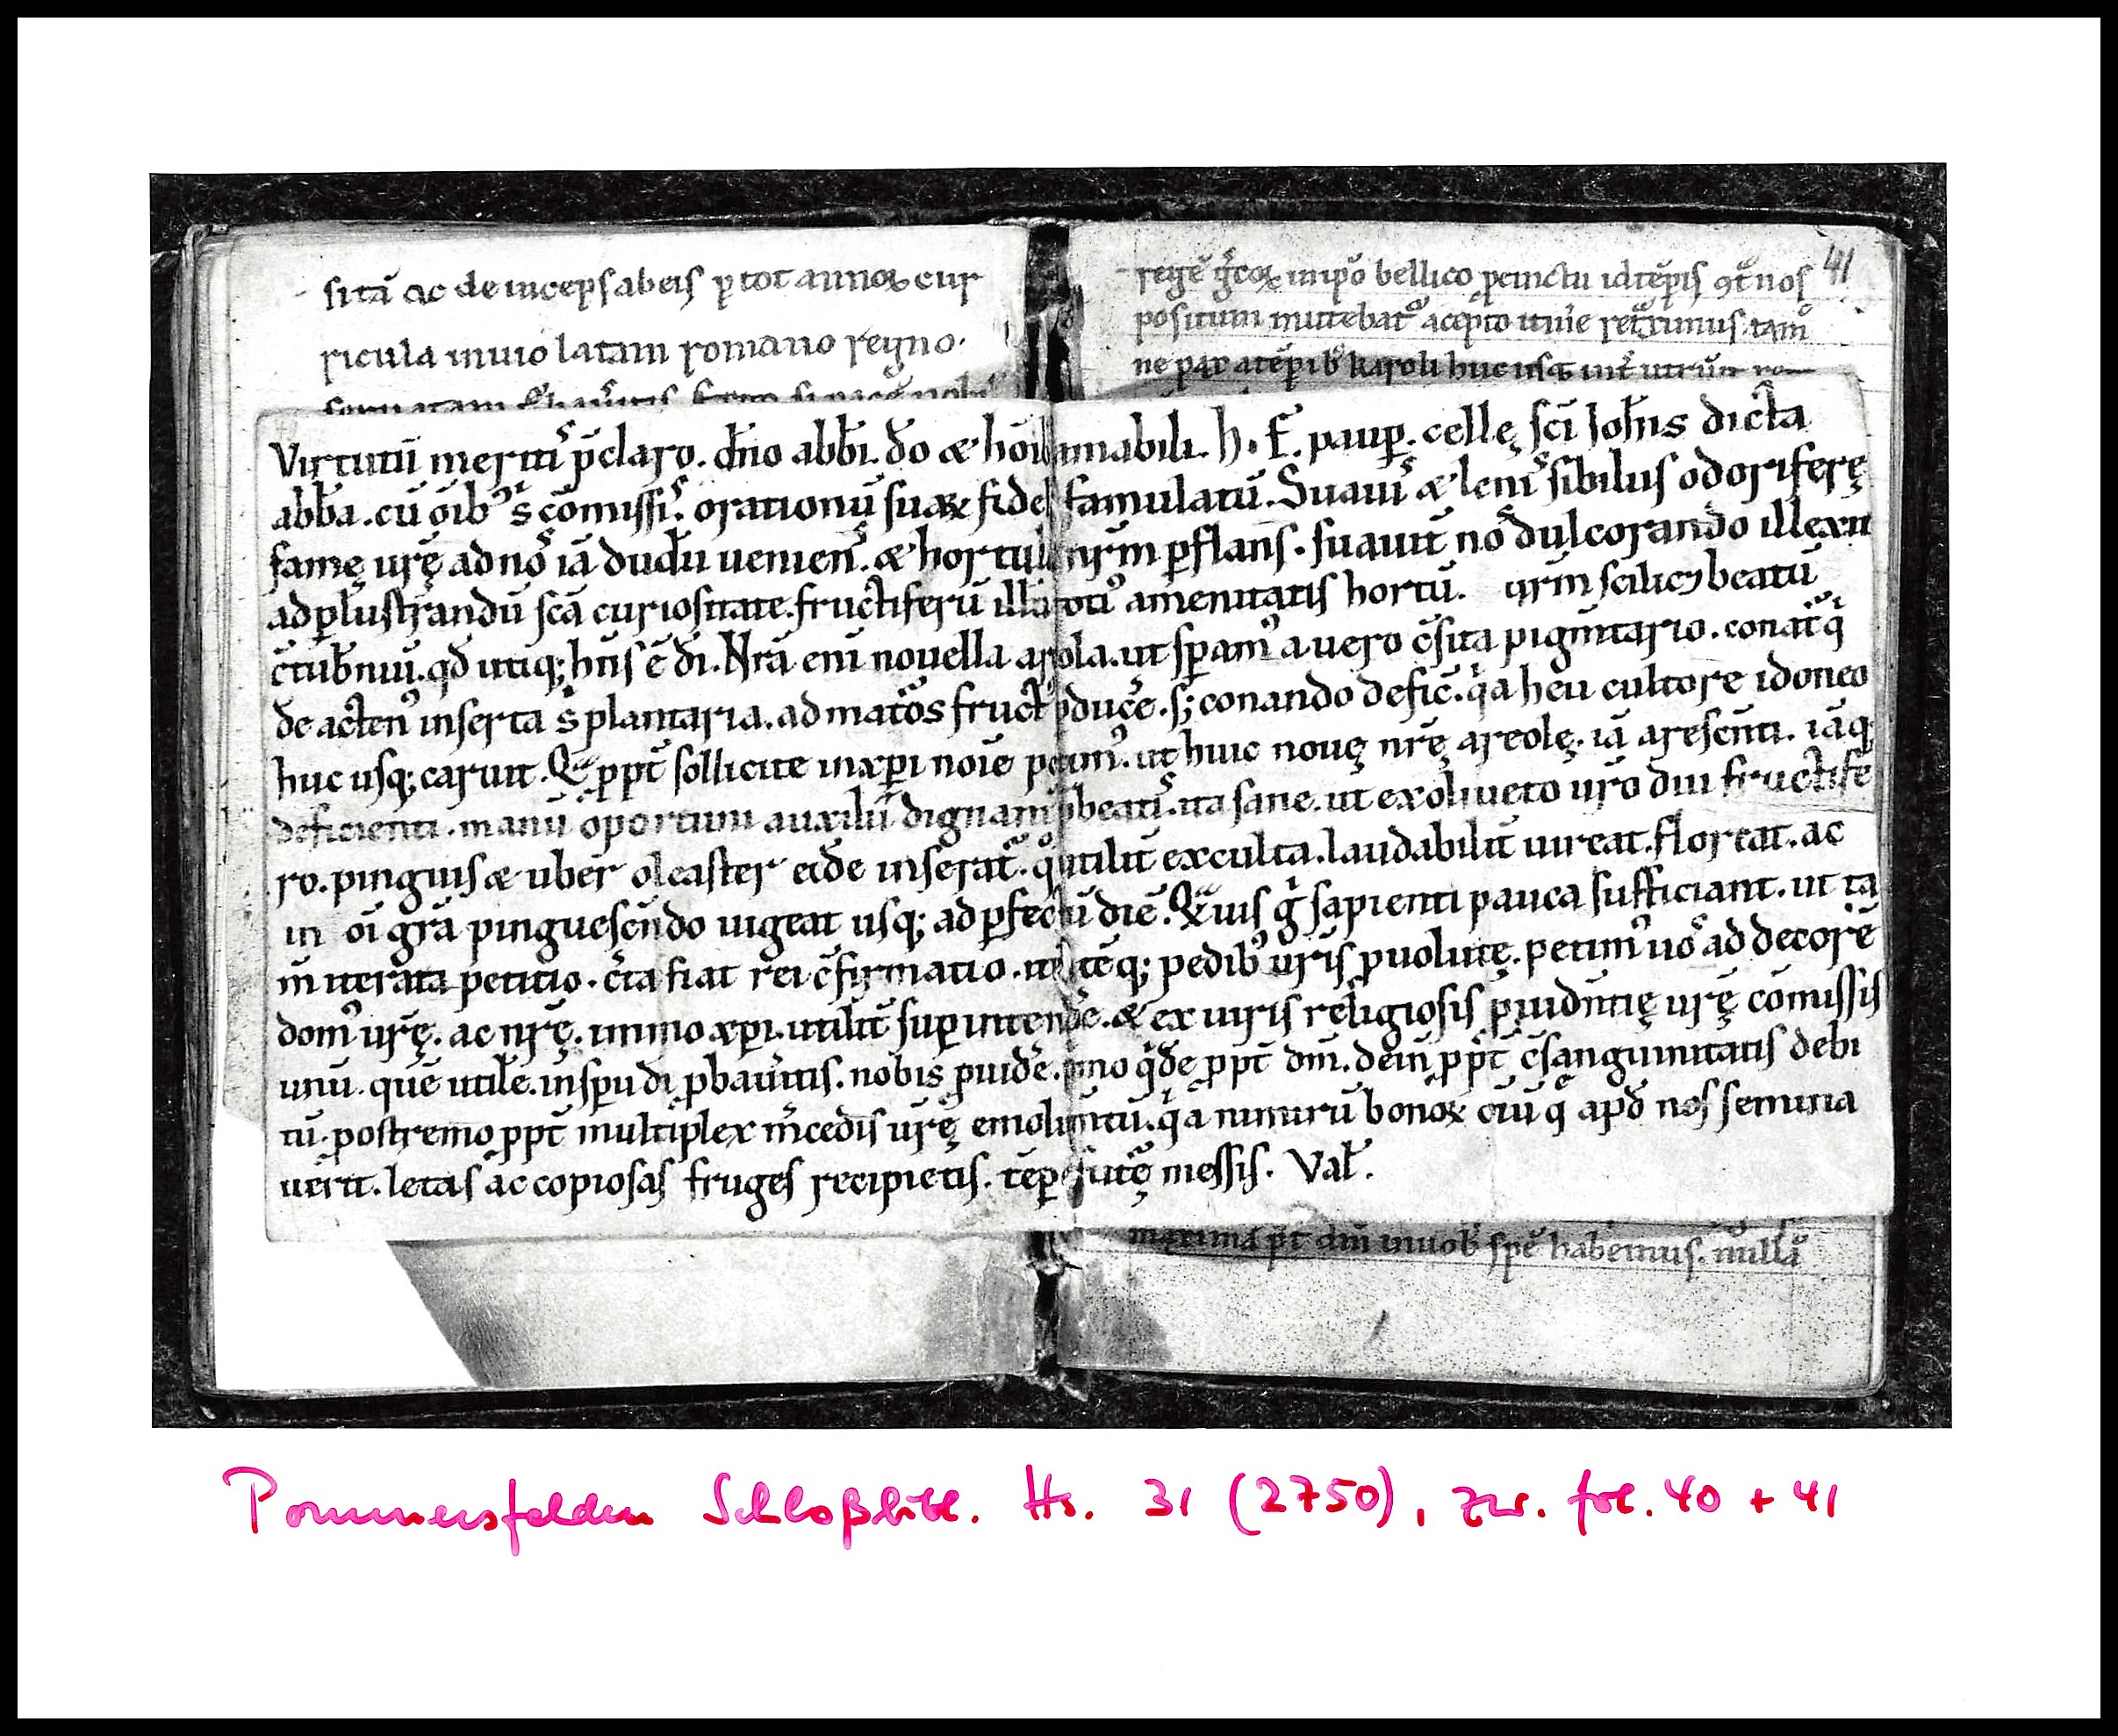 sitā ac deinceps abeis ꝑ tot annoꝝ cur
ricula inuiolatam romano regno.
41
regē grecoꝝ inpō bellico ꝑcinctu id tēpis ꝯt nos
positum mittebat accepto itinīe tam
ne pax a tēpib karoli huc usq; int utrūn
Virtutū meritis p̄claro. dn̄o abbi. dō æ hōib amabili. h. f. paup. cellę sc̄i Ioh̄is dicta
abba. cū oīb s̄ cōmissis. orationū suaꝝ fidelē famulatū. Suauis æ lenis sibilus odoriferę
famę ur̄ę ad nos iā dudū ueniens. æ hortulū nr̄m ꝑflans. suauit nos dulcorando illexit
ad ꝑlustrandū sc̄ā curiositate. fructiferū illū totius amenitatis hortū. ur̄m scilicꝫ beatū
c̄tub̄niū. qd̄ utiq; hn̄s ē di. Nr̄ā eni nouella areola. ut speramꝰ a uero c̄sita pigm̄tario. conat q
de actenꝰ inserta s̄ plantaria. ad maturos fructꝰ ꝓducē. s; conando defic̄. q̇a heu cultore idoneo
huc usq; caruit. Qua ꝓpt̄ sollicite in xp̄i noīe petimꝰ. ut huic nouę nr̄ę areolę. iā arescn̄ti. iāq;
deficienti. manū oportuni auxilii dignamī p̄beatis. ita sane. ut ex oliueto ur̄o diu fructife
ro. pinguis æ uber oleaster eidē inserat̄. q utilit̄ exculta. laudabilit̄ uireat. floreat. ac
in oī gr̄ā pinguescēndo uigeat usq; ad ꝑfectū diē. Quāuis g sapienti pauca sufficiant. ut ta
m̄ iterata petitio. c̄ta fiat rei c̄firmatio. itē itēq; pedibꝰ ur̄is ꝓuolutę. petimꝰ uos ad decorē
domꝰ ur̄ę. ac nr̄ę. immo xp̄i. utilit̄ suꝑintendē. æ ex uiris religiosis ꝓuidn̄tię ur̄ę cōmissis
unū. quē utilē. in spū di ꝓbaueritis. nobis ꝓuidē. p̄mo qdē ꝓpt̄ dm̄. dein ꝓpt̄ c̄sanguinitatis debi
tū. postremo ꝓpt̄ multiplex m̄cedis ur̄ę emolumn̄tū. q̇a nimirū bonoꝝ oīuī q apd̄ nos semina
uerit. letas ac copiosas fruges recipietis. tēpore futurę messis. Val̄.
maxima pt̄ dm̄ in uob spē habemus. nullā
Pommersfelden Schloßbibl. Hs. 31 (2750), zw. fol. 40 + 41